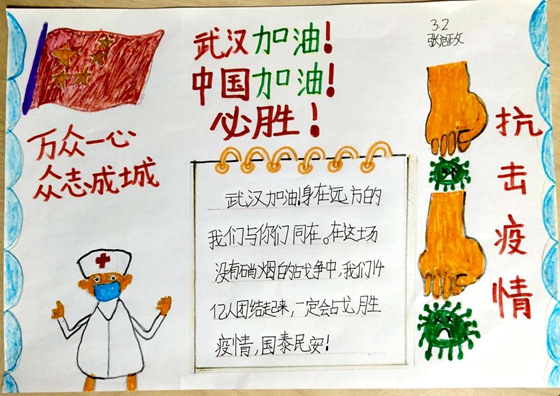 武汉加油!
中国加油!
必胜!
3.2
万众一心
众志成城
抗击疫情
武汉加油!身在远方的
我们与你们同在。在这场
没有硝烟的战争中,我们14
亿人团结起来,一定会战胜
疫情,国泰民安!